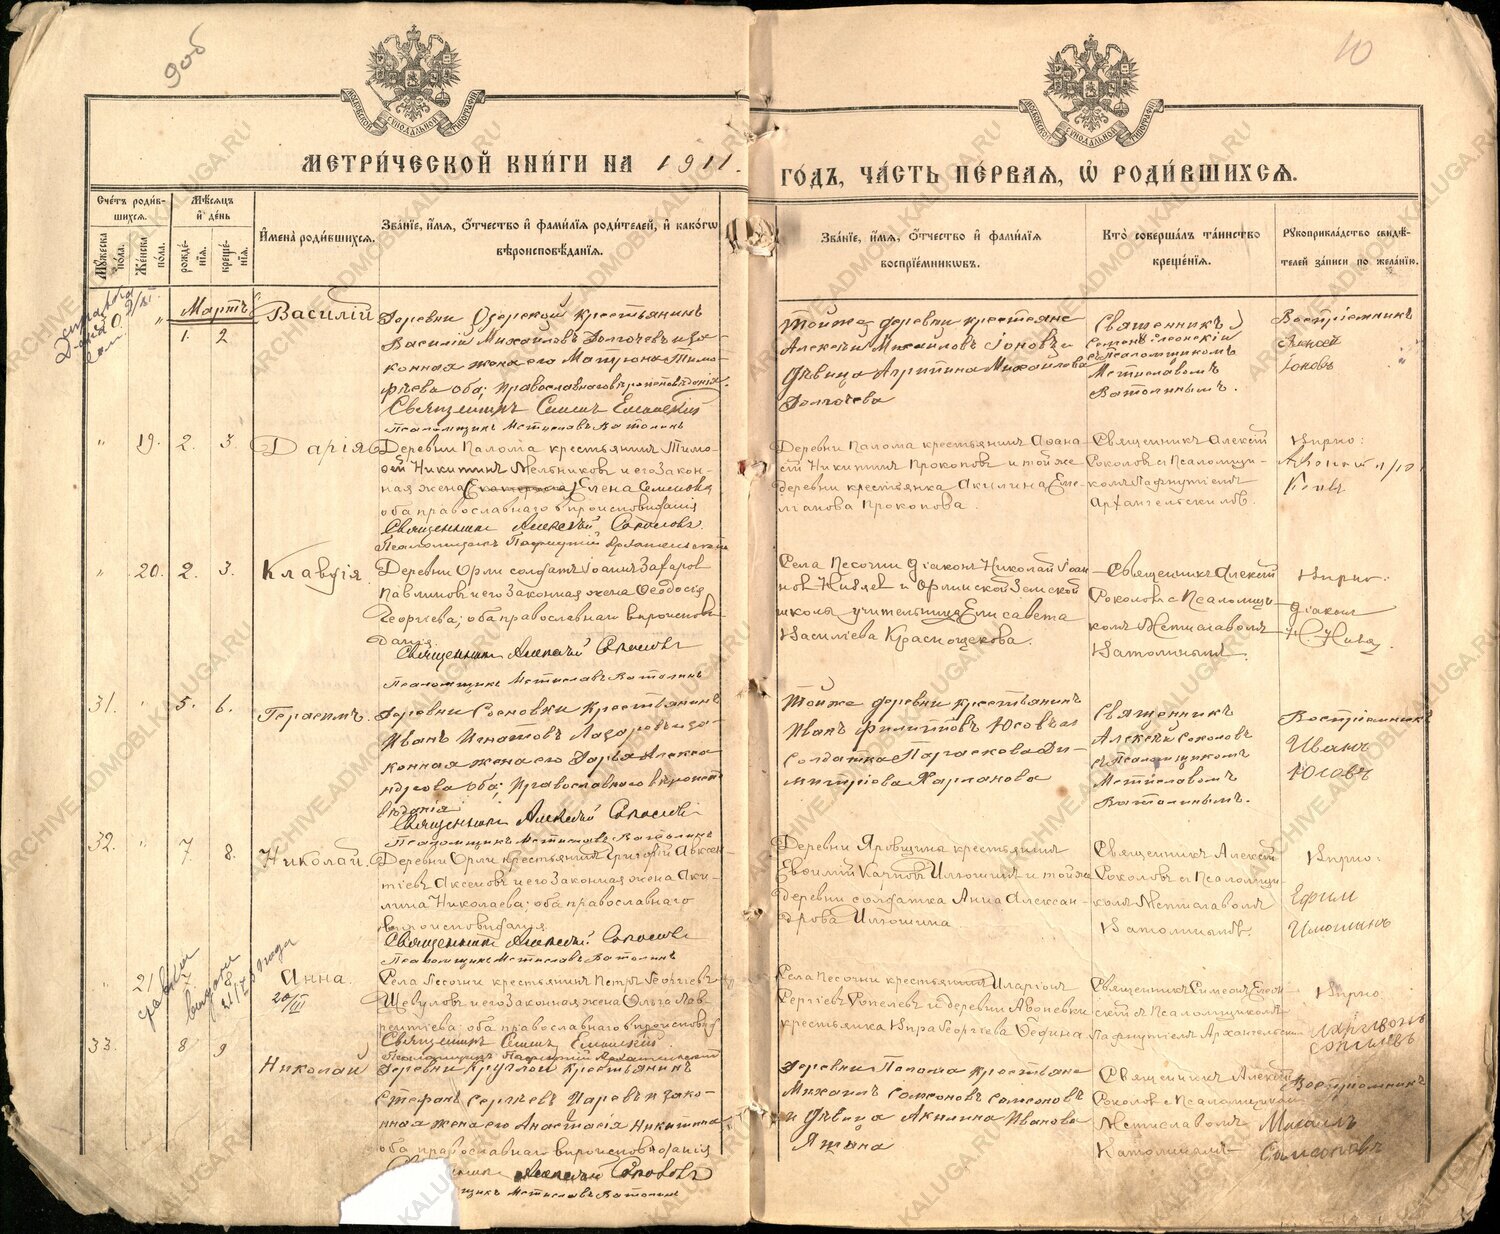 9об
10
МЕТРИ́ЧЕСКОЙ КНИ́ГИ НА 1911.
ГО́ДЪ, ЧА́СТЬ ПЕ́РВАЯ, Ѽ РОДИ́ВШИХСЯ.
Сче́тъ роди́в-
шихся.
Му́жеска по́ла.
Же́нска по́ла.
Мѣ́сяцъ
и҆ де́нь
рожде́-
нїя.
креще́-
нїя.
И҆мена̀ роди́вшихся.
Зва́нїе, и҆́мя, ѻ҆́тчество и҆ фами́лїя роди́телей, и҆ како́гѡ
вѣроисповѣ́данїя.
Зва́нїе, и҆́мя, ѻ҆́тчество и҆ фами́лїя
воспрїе́мникѡвъ.
Кто̀ соверша́лъ та́инство
креще́нїя.
Рꙋкоприкла́дство свидѣ́-
телей за́писи по жела́нїю.
Мартъ
1. 2
Василій
Деревни Озерской крестьянинъ
Василій Михайловъ Долгочевъ и за-
конная жена его Матрона Тимо-
фѣева оба; православнаго вѣроисповѣданія.
Священникъ Симеонъ Елеонскій
Псаломщикъ Мстиславъ Ватолинъ
Тойже деревни крестьяне
Алексѣй Михайловъ Іоновъ и
дѣвица Михайлова
Долгочева
Священникъ
Симеонъ Елеонскій
съ псаломщикомъ
Мстиславомъ
Ватолинымъ.
Воспріемникъ
Алексей
Іоновъ
19. 2. 3.
Дарія
Деревни Палома крестьянинъ Тимо-
ѳей Никитинъ Мельниковъ и его закон-
ная жена Елена Семенова
оба православнаго вѣроисповѣданія
Священникъ Алексѣй Соколовъ
Псаломщикъ Пафнутій Архангельскій
Деревни Палома крестьянинъ Аѳана-
сій Никитинъ Прокоповъ и той же
деревни крестьянка Акилина Еме-
льянова Прокопова.
Священникъ Алексѣй
Соколовъ с Псаломщи-
комъ Пафнутіемъ
Архангельскимъ.
20. 2. 3.
Клавдія.
Деревни Орли солдатъ Іоаннъ Захаровъ
Павлиновъ и его законная жена Ѳеодосія
Георгіева; оба православнаго вѣроисповѣ-
данія
Священникъ Алексѣй Соколовъ
Псаломщикъ Мстиславъ Ватолинъ
Села Песочни діаконъ Николай Іоан-
новъ и Орлинской Земской
школы учительница Елисавета
Василіева Краснощекова.
Священникъ Алексѣй
Соколовъ с Псаломщи-
комъ Мстиславомъ
Ватолинымъ.
діаконъ
31. 5. 6.
Герасимъ.
Деревни Сосновки крестьянинъ
Иванъ Игнатовъ Лазаревъ и за-
конная жена его Дарія Алекса-
ндрова оба; Православнаго вѣроиспо-
вѣданія
Священникъ Алексѣй Соколовъ
Псаломщикъ Мстиславъ Ватолинъ
Тойже деревни крестьянинъ
Иванъ Филипповъ Юсовъ и
солдатка Параскова Ди-
митріева Харланова
Священникъ
Алексѣй Соколовъ
съ Псаломщикомъ
Мстиславомъ
Ватолинымъ.
Воспріемникъ
Иванъ
Юсовъ
32. 7. 8.
Николай.
Деревни Орли крестьянинъ Григорій Авксен-
тіевъ Аксеновъ и его законная жена Аки-
лина Николаева; оба православнаго
вѣроисповѣданія
Священникъ Алексѣй Соколовъ
Псаломщикъ Мстиславъ Ватолинъ
Деревни Яровщина крестьянинъ
Евѳимій Карповъ Илюшинъ и той же
деревни солдатка Анна Алексан-
дрова Илюшина
Священникъ Алексѣй
Соколовъ с Псаломщи-
комъ Мстиславомъ
Ватолинымъ
Ефим
Илюшинъ
21 7 8
Анна.
20/III
Села Песочни крестьянинъ Петръ Георгіевъ
Шевуловъ и его законная жена Ольга Лав-
рентіева; оба православнаго вѣроисповѣд
Священникъ Симеонъ Елеонскій
Псаломщикъ Пафнутій Архангельскій
Села Песочни крестьянинъ Иларіонъ
Сергіевъ и деревни Авдѣевки
крестьянка Кира Георгіева
Священникъ Симеонъ Елеон-
скій с Псаломщикомъ
Пафнутіемъ Архангельскимъ
33. 8 9
Николай
Деревни Круглой крестьянинъ
Стефанъ Сергѣевъ Царевъ и зако-
нная жена его Анастасія Никитина
оба православнаго вѣроисповѣданія
Алексѣй Соколовъ
щикъ Мстиславъ Ватолинъ
Деревни Палома крестьяне
Михаилъ Самсоновъ Самсоновъ
и дѣвица Акилина Иванова
Яшина
Священникъ Алексѣй
Соколовъ с Псаломщикомъ
Мстиславомъ
Ватолинымъ
Воспріемникъ
Михаилъ
Самсоновъ
ARCHIVE.ADMOBLKALUGA.RU